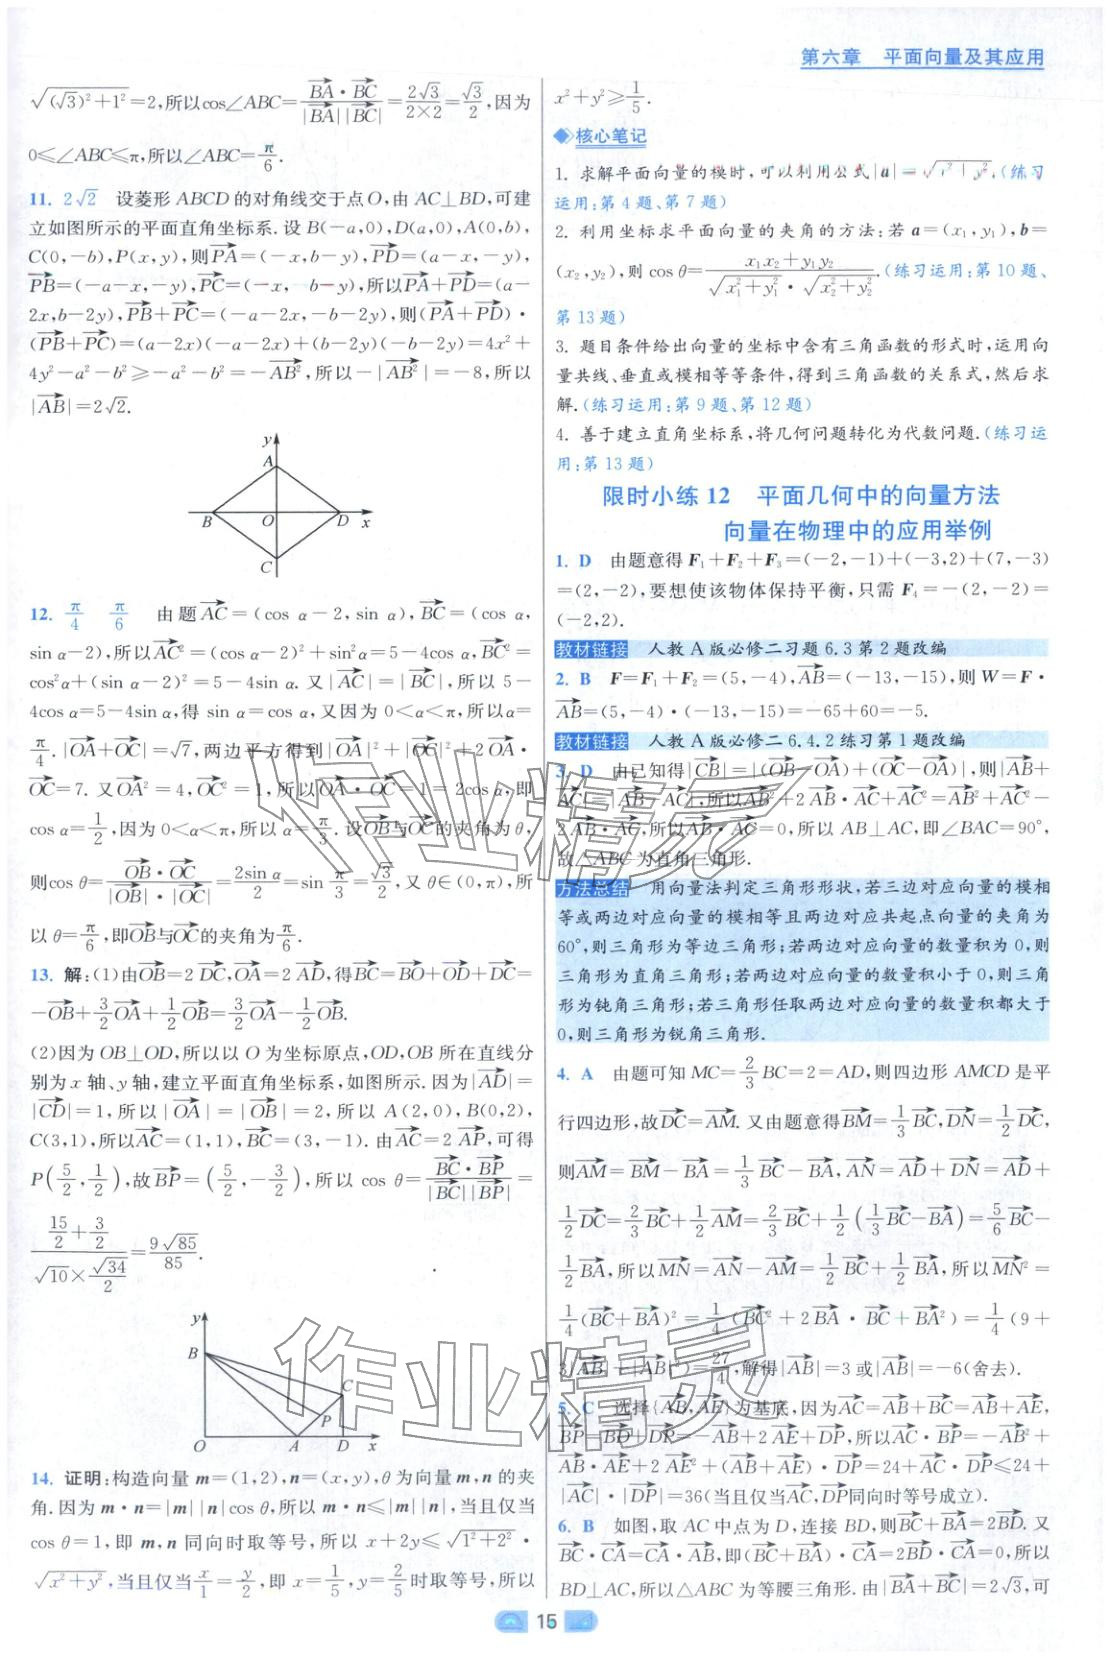 第六章　平面向量及其应用
√((√3)²+1²)=2,所以cos∠ABC=(BA→·BC→)/(|BA→||BC→|)=2√3/(2×2)=√3/2,因为
0≤∠ABC≤π,所以∠ABC=π/6.
11. 2√2　设菱形ABCD的对角线交于点O,由AC⊥BD,可建
立如图所示的平面直角坐标系.设B(-a,0),D(a,0),A(0,b),
C(0,-b),P(x,y),则PA→=(-x,b-y),PD→=(a-x,-y),
PB→=(-a-x,-y),PC→=(-x, b-y),所以PA→+PD→=(a-
2x,b-2y),PB→+PC→=(-a-2x,-b-2y),则(PA→+PD→)·
(PB→+PC→)=(a-2x)(-a-2x)+(b-2y)(-b-2y)=4x²+
4y²-a²-b²≥-a²-b²=-AB→²,所以-|AB→²|=-8,所以
|AB→|=2√2.
y
A
B O D x
C
12. π/4　π/6　由题AC→=(cos α-2,sin α),BC→=(cos α,
sin α-2),所以AC→²=(cos α-2)²+sin²α=5-4cos α,BC→²=
cos²α+(sin α-2)²=5-4sin α.又|AC→|=|BC→|,所以5-
4cos α=5-4sin α,得sin α=cos α,又因为0<α<π,所以α=
π/4.|OA→+OC→|=√7,两边平方得到|OA→|²+|OC→|²+2OA→·
OC→=7.又OA→²=4,OC→²=1,所以OA→·OC→=1=2cos α,即
cos α=1/2,因为0<α<π,所以α=π/3.设OB→与OC→的夹角为θ,
则cos θ=(OB→·OC→)/(|OB→|·|OC→|)=2sin α/2=sin π/3=√3/2,又θ∈(0,π),所
以θ=π/6,即OB→与OC→的夹角为π/6.
13. 解:(1)由OB→=2DC→,OA→=2AD→,得BC→=BO→+OD→+DC→=
-OB→+3/2OA→+1/2OB→=3/2OA→-1/2OB→.
(2)因为OB⊥OD,所以以O为坐标原点,OD,OB所在直线分
别为x轴、y轴,建立平面直角坐标系,如图所示.因为|AD→|=
|CD→|=1,所以|OA→|=|OB→|=2,所以A(2,0),B(0,2),
C(3,1),所以AC→=(1,1),BC→=(3,-1).由AC→=2AP→,可得
P(5/2,1/2),故BP→=(5/2,-3/2),所以cos θ=(BC→·BP→)/(|BC→||BP→|)=
(15/2+3/2)/(√10×√34/2)=9√85/85.
y
B
C
P
O A D x
14. 证明:构造向量m=(1,2),n=(x,y),θ为向量m,n的夹
角.因为m·n=|m||n|cos θ,所以m·n≤|m||n|,当且仅当
cos θ=1,即m,n同向时取等号,所以x+2y≤√(1²+2²)·
√(x²+y²),当且仅当x/1=y/2,即x=1/5,y=2/5时取等号,所以
x²+y²≥1/5.
核心笔记
1. 求解平面向量的模时,可以利用公式|a|=√(x²+y²).(练习
运用:第4题、第7题)
2. 利用坐标求平面向量的夹角的方法:若a=(x₁,y₁),b=
(x₂,y₂),则cos θ=(x₁x₂+y₁y₂)/(√(x₁²+y₁²)·√(x₂²+y₂²)).(练习运用:第10题、
第13题)
3. 题目条件给出向量的坐标中含有三角函数的形式时,运用向
量共线、垂直或模相等等条件,得到三角函数的关系式,然后求
解.(练习运用:第9题、第12题)
4. 善于建立直角坐标系,将几何问题转化为代数问题.(练习运
用:第13题)
限时小练12　平面几何中的向量方法
向量在物理中的应用举例
1. D　由题意得F₁+F₂+F₃=(-2,-1)+(-3,2)+(7,-3)
=(2,-2),要想使该物体保持平衡,只需F₄=-(2,-2)=
(-2,2).
教材链接　人教A版必修二习题6.3第2题改编
2. B　F=F₁+F₂=(5,-4),AB→=(-13,-15),则W=F·
AB→=(5,-4)·(-13,-15)=-65+60=-5.
教材链接　人教A版必修二6.4.2练习第1题改编
3. D　由已知得|CB→|=|(OB→-OA→)+(OC→-OA→)|,则|AB→+
AC→|=|AB→-AC→|,所以AB→²+2AB→·AC→+AC→²=AB→²+AC→²-
2AB→·AC→,所以AB→·AC→=0,所以AB⊥AC,即∠BAC=90°,
故△ABC为直角三角形.
方法总结　用向量法判定三角形形状,若三边对应向量的模相
等或两边对应向量的模相等且两边对应共起点向量的夹角为
60°,则三角形为等边三角形;若两边对应向量的数量积为0,则
三角形为直角三角形;若两边对应向量的数量积小于0,则三角
形为钝角三角形;若三角形任取两边对应向量的数量积都大于
0,则三角形为锐角三角形.
4. A　由题可知MC=2/3BC=2=AD,则四边形AMCD是平
行四边形,故DC→=AM→.又由题意得BM→=1/3BC→,DN→=1/2DC→,
则AM→=BM→-BA→=1/3BC→-BA→,AN→=AD→+DN→=AD→+
1/2DC→=2/3BC→+1/2AM→=2/3BC→+1/2(1/3BC→-BA→)=5/6BC→-
1/2BA→,所以MN→=AN→-AM→=1/2BC→+1/2BA→,所以MN→²=
1/4(BC→+BA→)²=1/4(BC→²+2BA→·BC→+BA→²)=1/4(9+
3|AB→|+|AB→|²)=27/4,解得|AB→|=3或|AB→|=-6(舍去).
5. C　选择{AB→,AE→}为基底,因为AC→=AB→+BC→=AB→+AE→,
BP→=BD→+DP→=-AB→+2AE→+DP→,所以AC→·BP→=-AB→²+
AB→·AE→+2AE→²+(AB→+AE→)·DP→=24+AC→·DP→≤24+
|AC→|·|DP→|=36(当且仅当AC→,DP→同向时等号成立).
6. B　如图,取AC中点为D,连接BD,则BC→+BA→=2BD→.又
BC→·CA→=CA→·AB→,即(BC→+BA→)·CA→=2BD→·CA→=0,所以
BD⊥AC,所以△ABC为等腰三角形.由|BA→+BC→|=2√3,可
15
作业精灵
作业精灵